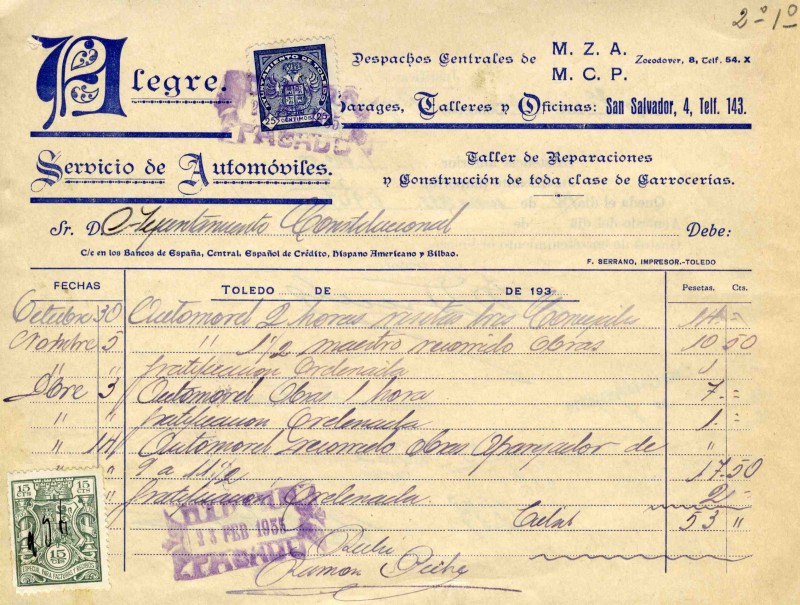 2º 1º
Alegre.
Despachos Centrales de M. Z. A.
M. C. P.
Zocodover, 8, Telf. 54. X
Garages, Talleres y Oficinas: San Salvador, 4, Telf. 143.
AYUNTAMIENTO DE TOLEDO
25 CENTIMOS 25
PAGADO
Servicio de Automóviles.
Taller de Reparaciones
y Construcción de toda clase de Carrocerías.
Sr. D. Ayuntamiento Constitucional Debe:
C/c en los Bancos de España, Central, Español de Crédito, Hispano Americano y Bilbao.
F. SERRANO, IMPRESOR.-TOLEDO
FECHAS TOLEDO DE DE 193 Pesetas. Cts.
Octubre 30 Automovel 2 horas visitas tres 14 =
Nombre 5 " 1 1/2 maestro recorrido obras 10 50
" " Gratificacion Ordenada 1
Dbre 3 Automovel Obras 1 hora 7 =
" " Gratificacion Ordenada 1 =
" 14 Automovel recorrido obras Aparejador de "
" 9 a 11 1/2 17 50
Gratificación Ordenada 2
53 "
23 FEB 1935
PAGADO
Recibi
Ramon
15 CTS 15 CTS
15 Cts
ESPECIAL PARA FACTURAS Y RECIBOS